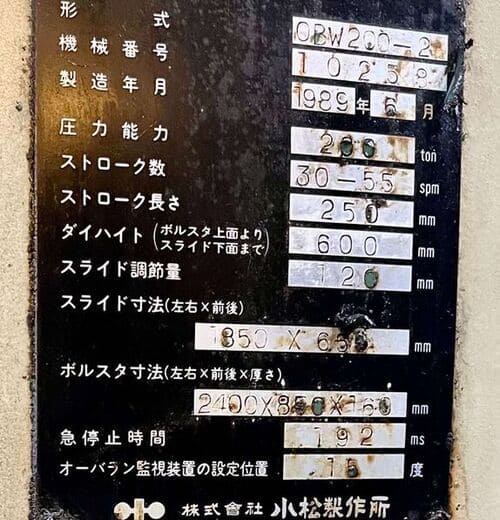 形式 OBW200-2
機械番号 10258
製造年月 1989年6月
圧力能力 200 ton
ストローク数 30-55 spm
ストローク長さ 250 mm
ダイハイト (ボルスタ上面より スライド下面まで) 600 mm
スライド調節量 120 mm
スライド寸法(左右×前後)
1850 X 650 mm
ボルスタ寸法(左右×前後×厚さ)
2400X850X160 mm
急停止時間 192 ms
オーバラン監視装置の設定位置 15 度
株式會社 小松製作所